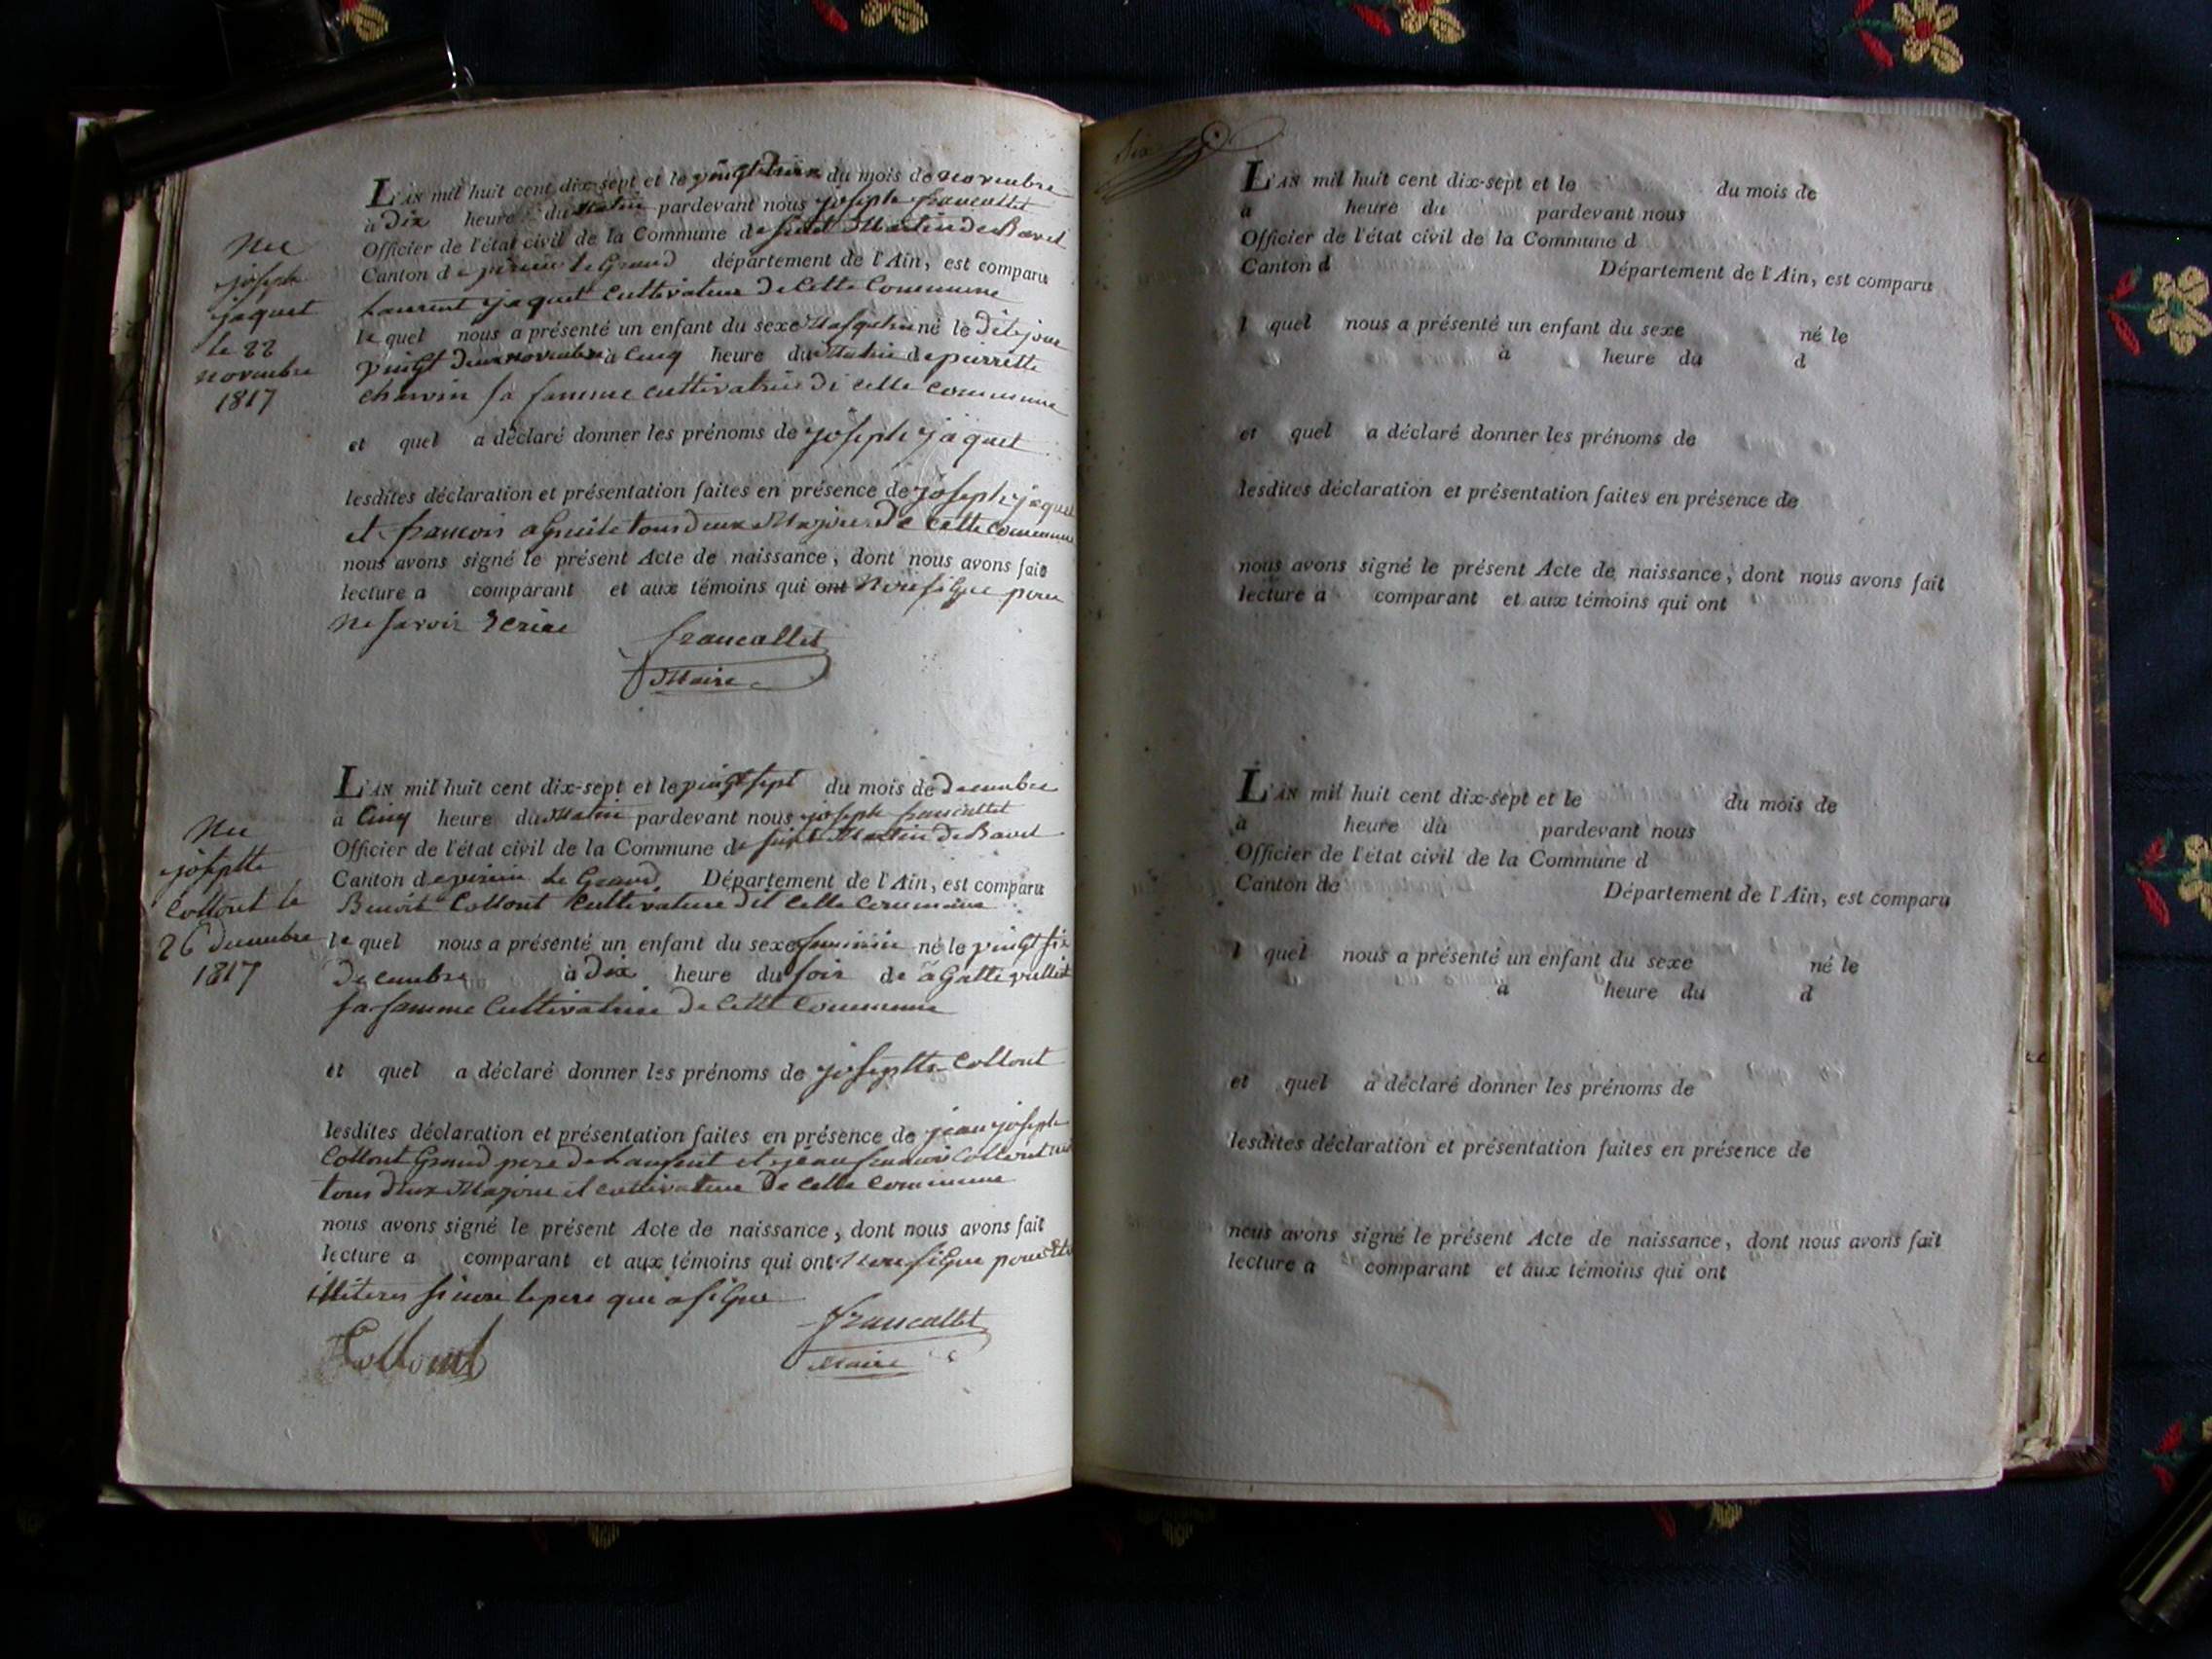 L'AN mil huit cent dix-sept et le vingt deux du mois de novembre
à Dix heure du Matin pardevant nous joseph francallet
Officier de l'état civil de la Commune de Martin de Bavel
Canton de le Grand département de l'Ain, est comparu
Laurent jaquet Cultivateur de Cette Commune
le quel nous a présenté un enfant du sexe né le dit jour
vingt deux novembre à Cinq heure du Matin de pierrette
charvin sa famme cultivatrice de cette commune
et quel a déclaré donner les prénoms de joseph jaquet
lesdites déclaration et présentation faites en présence de joseph jaquet
et francois tous deux Majeur De Cette Commune
nous avons signé le présent Acte de naissance, dont nous avons fait
lecture a comparant et aux témoins qui ont signe pour
ne savoir
francallet
Maire
Nee
joseph
jaquet
le 22
novembre
1817
L'AN mil huit cent dix-sept et le vingt sept du mois de Decembre
à Cinq heure du Matin pardevant nous joseph francallet
Officier de l'état civil de la Commune de Martin De Bavel
Canton de le Grand Département de l'Ain, est comparu
Benoit Collont Cultivateur Cette Commune
le quel nous a présenté un enfant du sexe feminin né le vingt six
Decembre à Dix heure du soir de
sa famme Cultivatrice De Cette Commune
et quel a déclaré donner les prénoms de josephte Collont
lesdites déclaration et présentation faites en présence de jean joseph
Collont Grand pere De Lanfent et jean francois Collont
tous deux Majeur et cultivateur De Cette Commune
nous avons signé le présent Acte de naissance, dont nous avons fait
lecture a comparant et aux témoins qui ont signe pour
le pere qui a signe
Collont
francallet
Maire
Nee
josephte
Collont le
26 decembre
1817
L'AN mil huit cent dix-sept et le du mois de
à heure du pardevant nous
Officier de l'état civil de la Commune d
Canton d Département de l'Ain, est comparu
l quel nous a présenté un enfant du sexe né le
à heure du d
et quel a déclaré donner les prénoms de
lesdites déclaration et présentation faites en présence de
nous avons signé le présent Acte de naissance, dont nous avons fait
lecture a comparant et aux témoins qui ont
L'AN mil huit cent dix-sept et le du mois de
à heure du pardevant nous
Officier de l'état civil de la Commune d
Canton de Département de l'Ain, est comparu
l quel nous a présenté un enfant du sexe né le
à heure du d
et quel a déclaré donner les prénoms de
lesdites déclaration et présentation faites en présence de
nous avons signé le présent Acte de naissance, dont nous avons fait
lecture a comparant et aux témoins qui ont